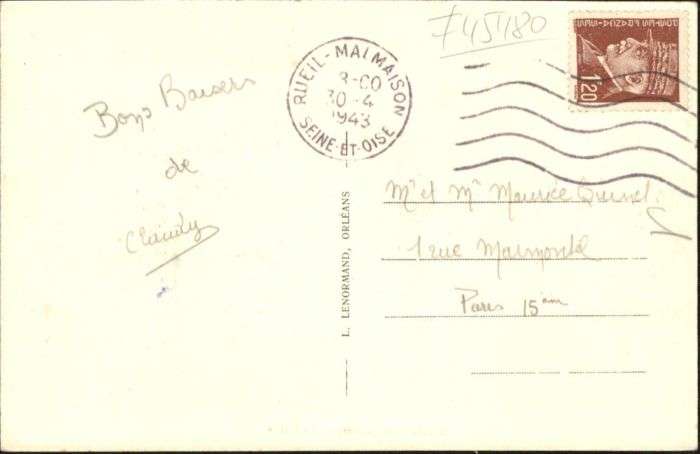 745180
RUEIL-MALMAISON
30-4
1943
SEINE-ET-OISE
1f20
Bons Baisers
de
Claudy
L. LENORMAND, ORLÉANS
Mr et Me Maurice
1 rue Marmontel
Paris 15em